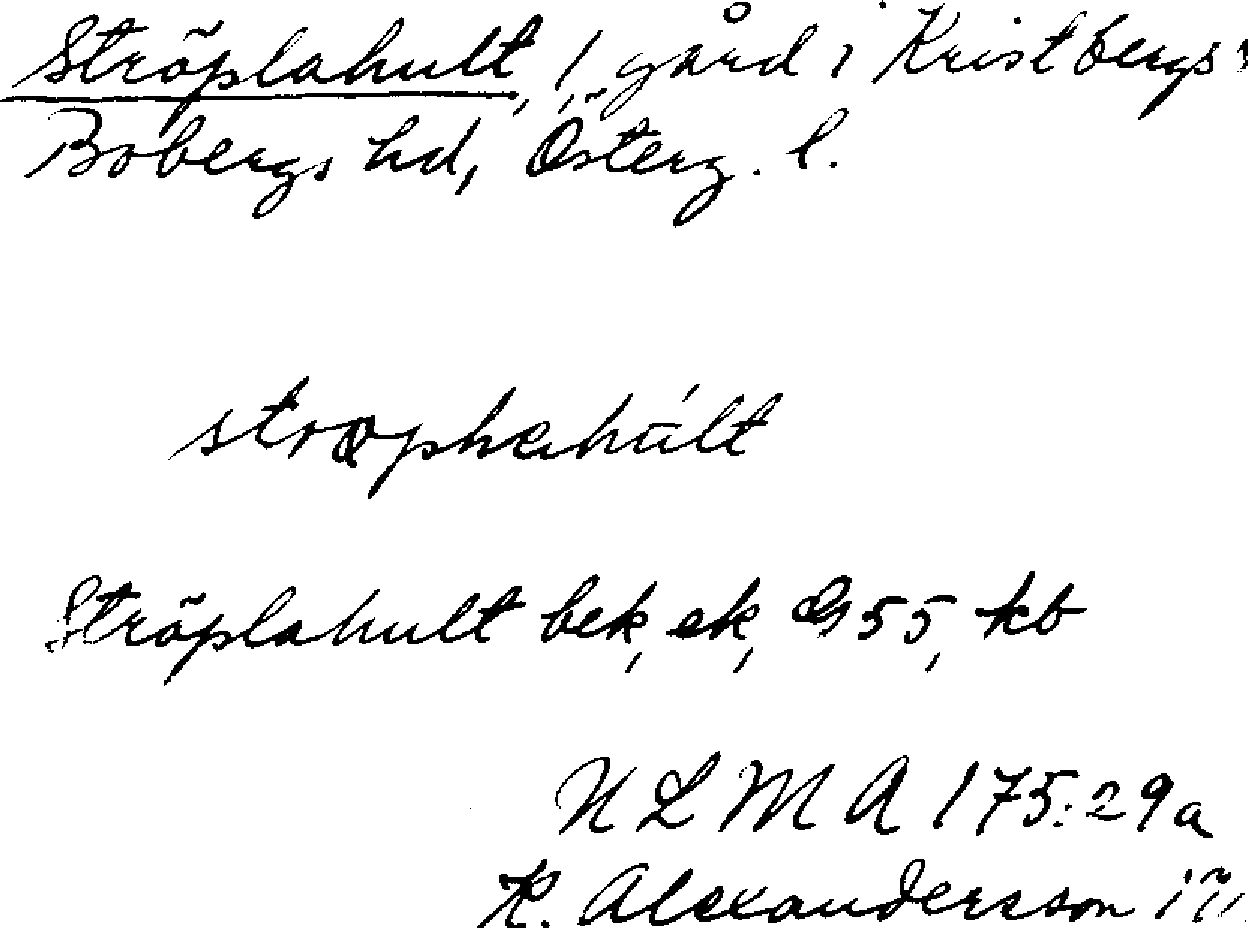 Ströplahult, 1 gård i Kristbergs
Bobergs hd, Österg. l.
Ströplahult bek, ek, G 55, kb
NLM A 175:29a
K. Alexandersson